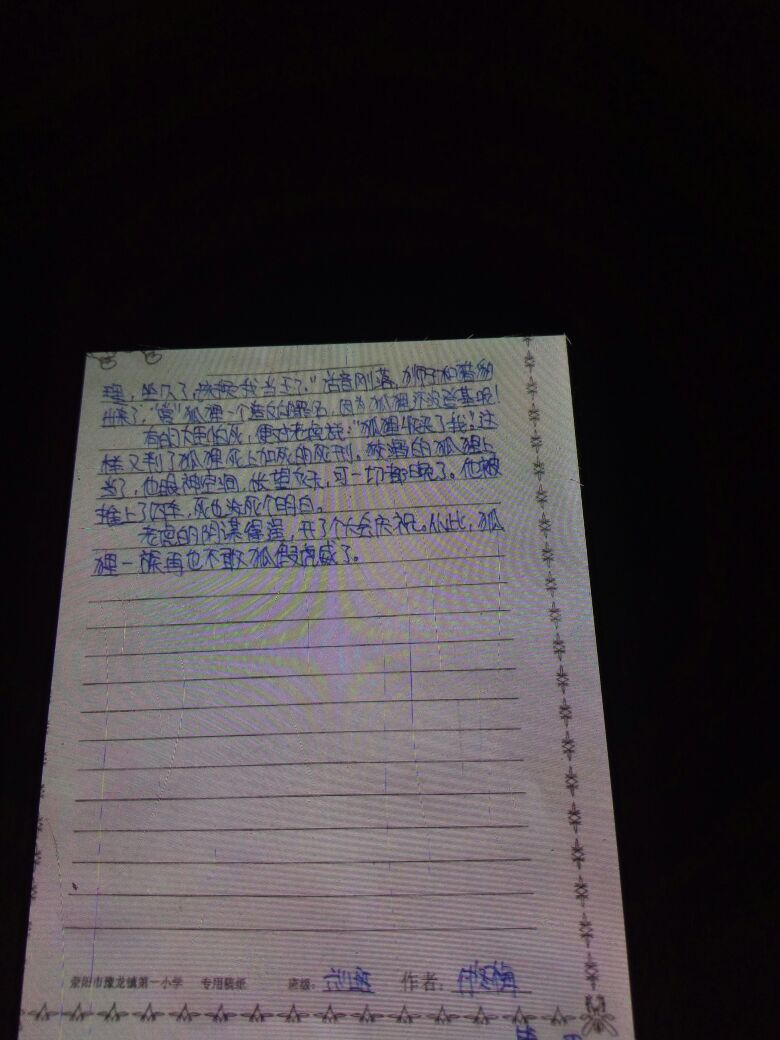 狸，坐久了，该换我当王了。"话音刚落，狮子和猎豹
出来了，"赏"狐狸一个造反的罪名，因为狐狸还没登基呢！
有的大臣怕死，便对老虎说："狐狸收买了我！"这
样又判了狐狸死上加死的死刑。狡猾的狐狸上
当了，他眼神空洞，长望欠天，可一切都晚了。他被
推上了囚车，死也没死个明白。
老虎的阴谋得逞，开了个大会庆祝。从此，狐
狸一族再也不敢狐假虎威了。
荥阳市豫龙镇第一小学 专用稿纸 班级： 作者：